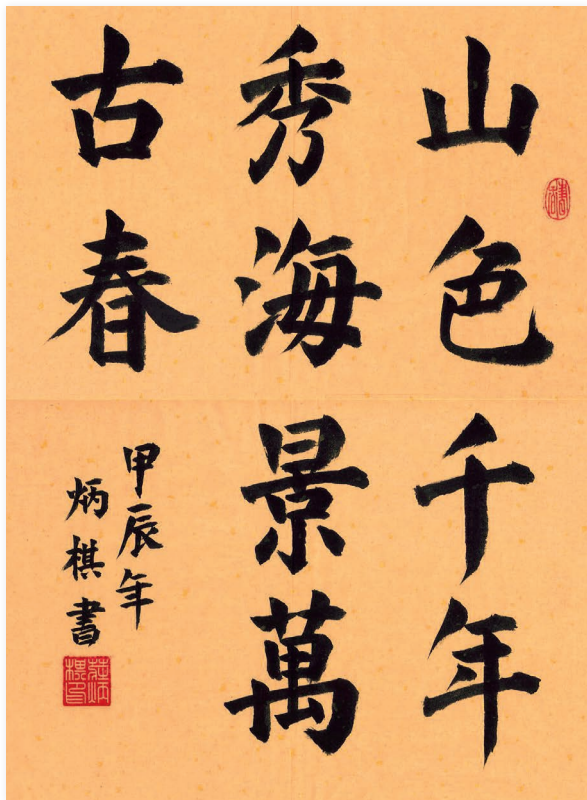 山色千年
秀海景萬
古春
甲辰年
炳棋書